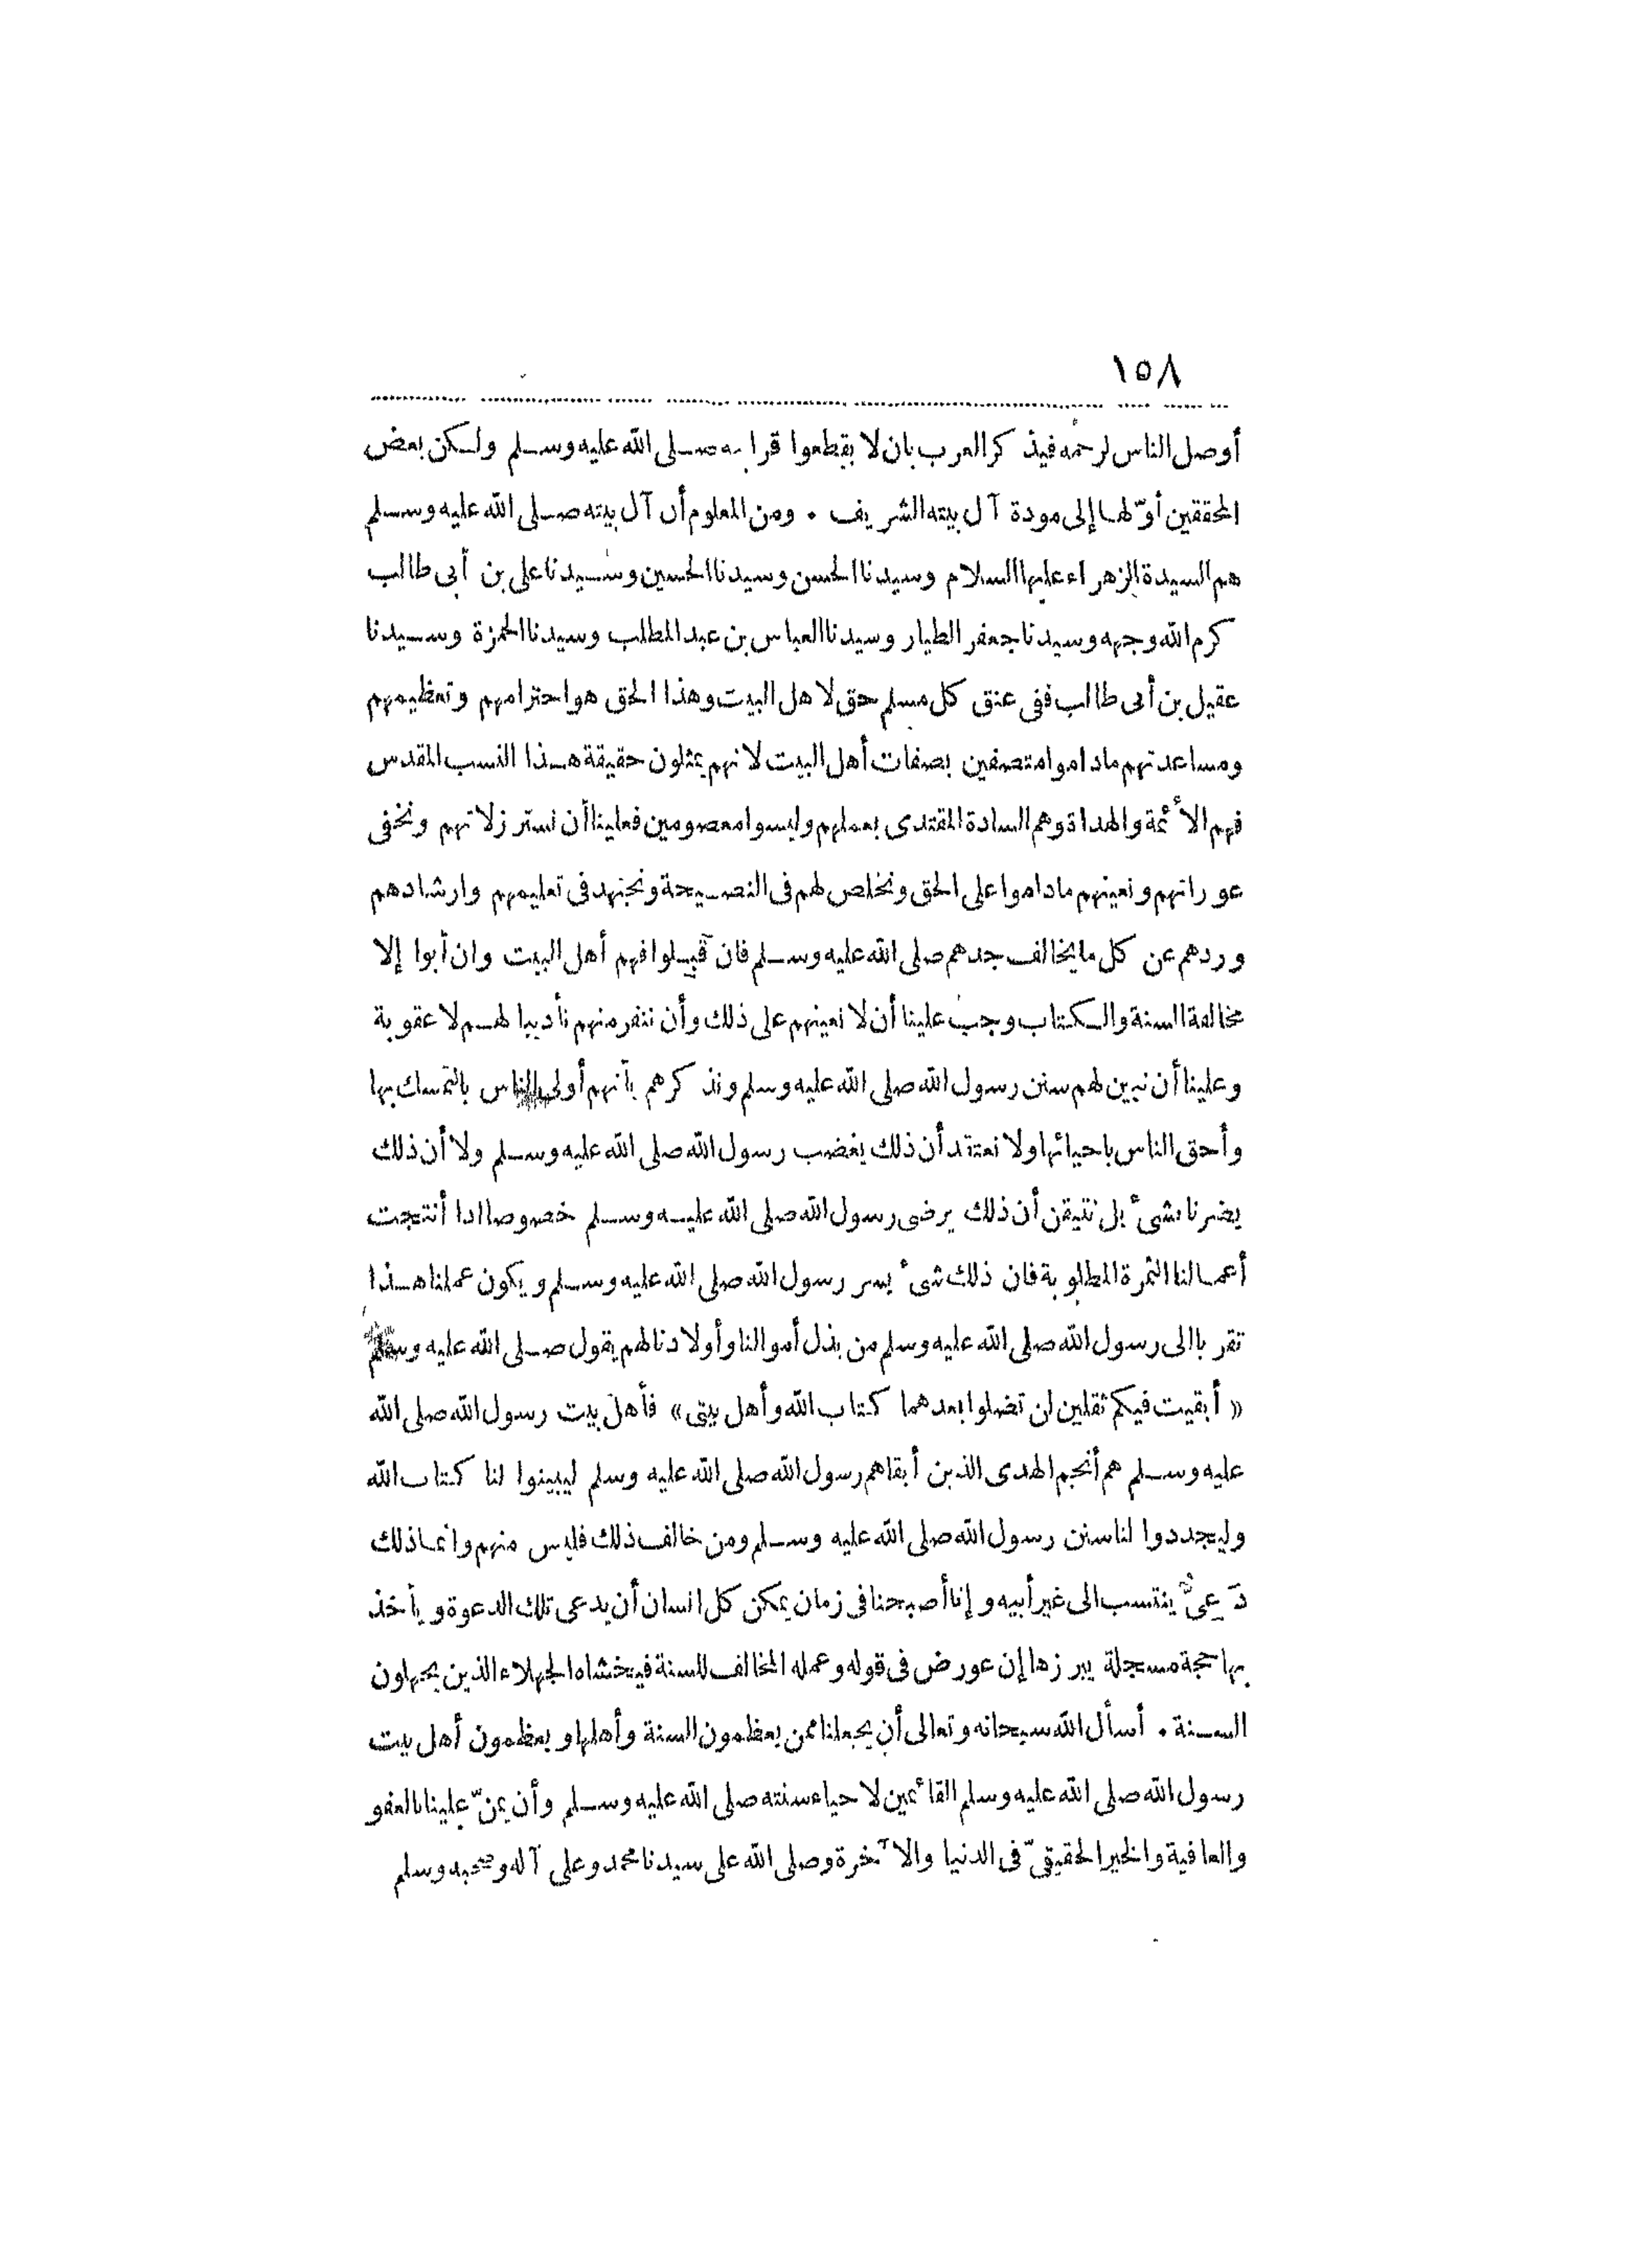 ١٥٨
أوصل الناس لرحمه فيذكر العرب بان لا يقطعوا قرابته صلى الله عليه وسلم ولكن بعض
المحققين أوّلها إلى مودة آل بيته الشريف . ومن المعلوم أن آل بيته صلى الله عليه وسلم
هم السيدة الزهراء عليها السلام وسيدنا الحسن وسيدنا الحسين وسيدنا على بن أبى طالب
كرم الله وجهه وسيدنا جعفر الطيار وسيدنا العباس بن عبد المطلب وسيدنا الحمزة وسيدنا
عقيل بن أبى طالب ففى عنق كل مسلم حق لاهل البيت وهذا الحق هو احترامهم وتعظيمهم
ومساعدتهم ماداموا متصفين بصفات أهل البيت لانهم يمثلون حقيقة هذا النسب المقدس
فهم الأئمة والهداة وهم السادة المقتدى بعملهم وليسوا معصومين فعلينا أن نستر زلاتهم ونخفى
عوراتهم ونعينهم ماداموا على الحق ونخلص لهم فى النصيحة ونجتهد فى تعليمهم وارشادهم
وردهم عن كل ما يخالف جدهم صلى الله عليه وسلم فان قبلوا فهم أهل البيت وان أبوا إلا
مخالفة السنة والكتاب وجب علينا أن لا نعينهم على ذلك وأن ننفر منهم تأديبا لهم لا عقوبة
وعلينا أن نبين لهم سنن رسول الله صلى الله عليه وسلم ونذكرهم بأنهم أولى الناس بالتمسك بها
وأحق الناس باحيائها ولا نعتقد أن ذلك يغضب رسول الله صلى الله عليه وسلم ولا أن ذلك
يضرنا بشىء بل نتيقن أن ذلك يرضى رسول الله صلى الله عليه وسلم خصوصا اذا أنتجت
أعمالنا الثمرة المطلوبة فان ذلك شىء يسر رسول الله صلى الله عليه وسلم ويكون عملنا هذا
تقربا الى رسول الله صلى الله عليه وسلم من بذل أموالنا وأولادنا لهم يقول صلى الله عليه وسلم
« أبقيت فيكم ثقلين لن تضلوا بعدهما كتاب الله وأهل بيتى » فأهل بيت رسول الله صلى الله
عليه وسلم هم أنجم الهدى الذين أبقاهم رسول الله صلى الله عليه وسلم ليبينوا لنا كتاب الله
وليجددوا لنا سنن رسول الله صلى الله عليه وسلم ومن خالف ذلك فليس منهم وانما ذلك
دَعِىٌّ ينتسب الى غير أبيه وإنا أصبحنا فى زمان يمكن كل انسان أن يدعى تلك الدعوة ويأخذ
بها حجة مسجلة يبرزها إن عورض فى قوله وعمله المخالف للسنة فيخشاه الجهلاء الذين يجهلون
السنة . أسأل الله سبحانه وتعالى أن يجعلنا ممن يعظمون السنة وأهلها ويعظمون أهل بيت
رسول الله صلى الله عليه وسلم القائمين لاحياء سنته صلى الله عليه وسلم وأن يمنّ علينا بالعفو
والعافية والخير الحقيقىّ فى الدنيا والآخرة وصلى الله على سيدنا محمد وعلى آله وصحبه وسلم